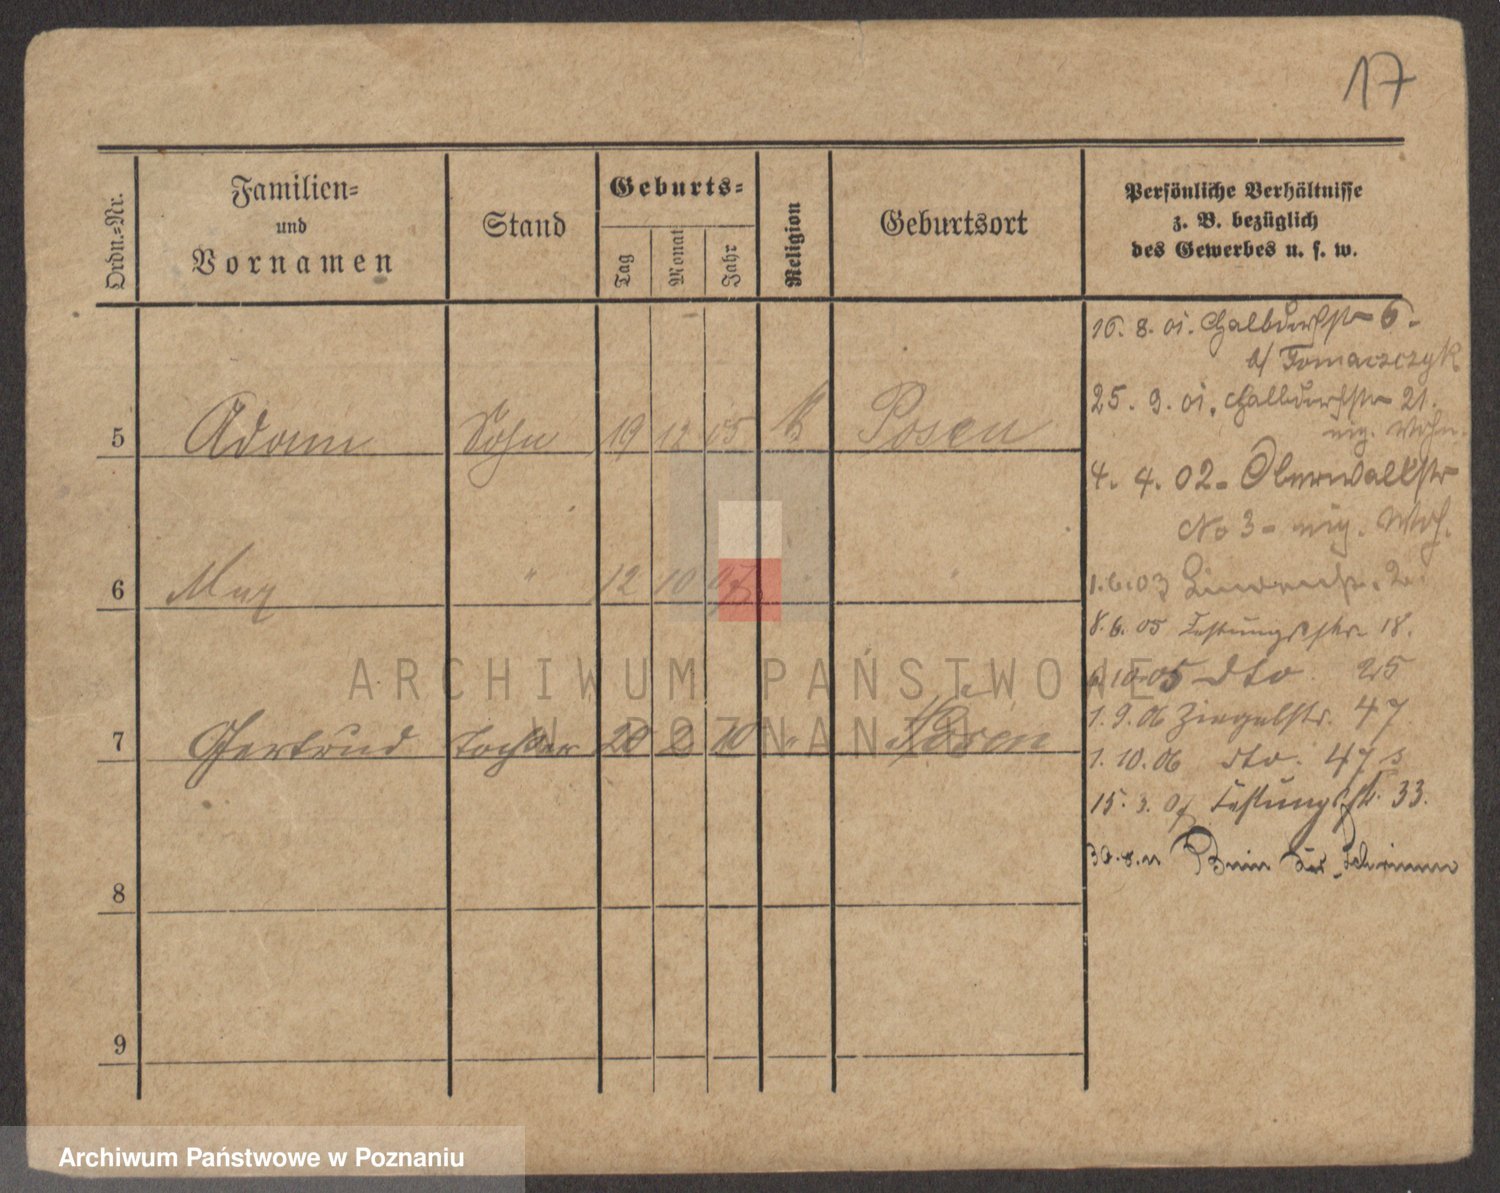 17
Ordn.-Nr.
Familien-
und
Vornamen
Stand
Geburts-
Tag
Monat
Jahr
Religion
Geburtsort
Persönliche Verhältnisse
z. B. bezüglich
des Gewerbes u. s. w.
16. 8. 01. Halbdorfstr 6.
b/ Tomaszczyk
25. 9. 01. Halbdorfstr 21.
eig. Wohn.
5 Adam Sohn 19 12 05 k Posen
4. 4. 02. Oberwallstr
No 3 - eig. Woh.
6 Max " 12 10 07 " "
1.6.03 2.
8. 6. 05 Festungsstr 18.
10.05 dto. 25
1. 9. 06 Ziegelstr. 47
7 Gertrud Tochter 20 2 10 " Posen
1. 10. 06 dto. 47
15. 3. 07 Festungsstr. 33.
30. 8. 11 Bnin Krs. Schrimm
8
9
ARCHIWUM PAŃSTWOWE
W POZNANIU
Archiwum Państwowe w Poznaniu